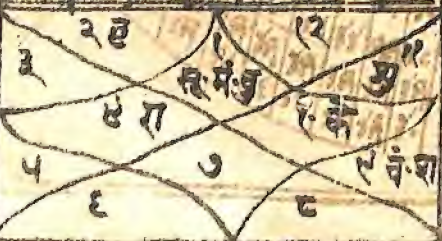 २ १ १२
३ सू·मं·बु ११ शु
४ रा १०·के
५ ७ ९ चं·श
६ ८